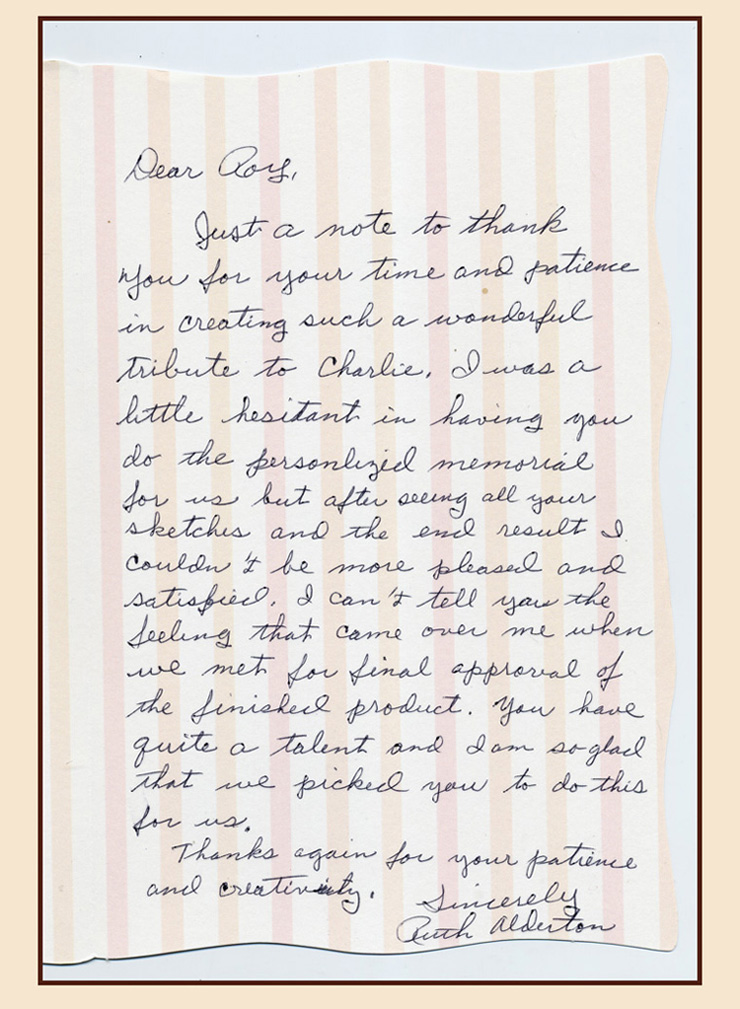 Dear Roy,
Just a note to thank
you for your time and patience
in creating such a wonderful
tribute to Charlie. I was a
little hesitant in having you
do the personlized memorial
for us but after seeing all your
sketches and the end result I
couldn't be more pleased and
satisfied. I can't tell you the
feeling that came over me when
we met for final approval of
the finished product. You have
quite a talent and I am so glad
that we picked you to do this
for us.
Thanks again for your patience
and creativity.
Sincerely
Ruth Alderton